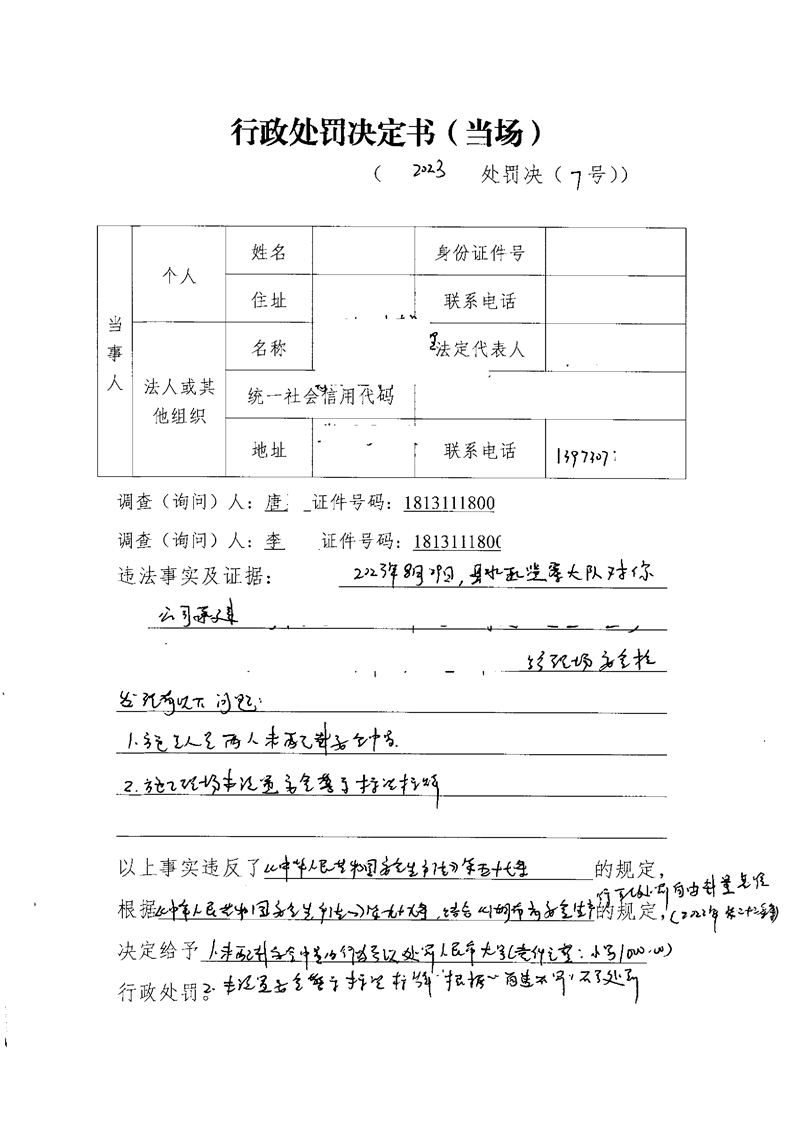 行政处罚决定书（当场）
（ 2023 处罚决（7号））
当事人
个人
姓名
身份证件号
住址
联系电话
法人或其他组织
名称
法定代表人
统一社会信用代码
地址
联系电话
1397307
调查（询问）人：唐 证件号码：1813111800
调查（询问）人：李 证件号码：181311180
违法事实及证据： 2023年8月29日，县水政监察大队对你
公司承建
现场安全检
发现有以下问题：
1.施工人员两人未配戴安全帽.
2.施工现场未设置安全警示标识标牌
以上事实违反了《中华人民共和国安全生产法》第五十七条 的规定，
根据《中华人民共和国安全生产法》 的规定，
行政处罚自由裁量
决定给予 1.未配戴安全帽的行为予以处罚人民币大写（壹仟元整：小写1000.00）
行政处罚。2.未设置安全警示标识标牌 不予处罚